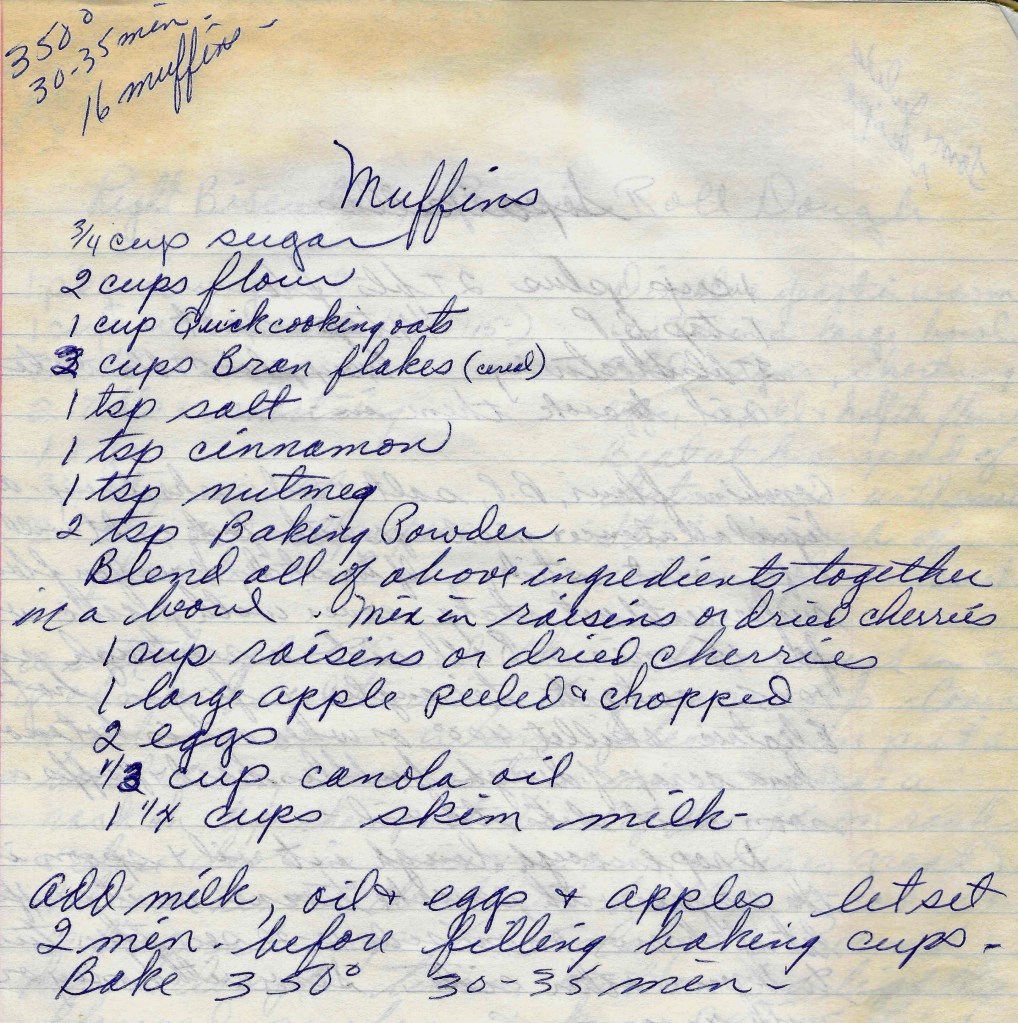 350°
30-35 min.
16 muffins -
Muffins
3/4 cup sugar
2 cups flour
1 cup Quick cooking oats
cups Bran flakes (cereal)
1 tsp salt
1 tsp cinnamon
1 tsp nutmeg
2 tsp Baking Powder
Blend all of above ingredients together
in a bowl. Mix in raisins or dried cherries
1 cup raisins or dried cherries
1 large apple peeled & chopped
2 eggs
cup canola oil
1 1/4 cups skim milk-
add milk, oil & eggs & apples let set
2 min. before filling baking cups.
Bake 350° 30-35 min-